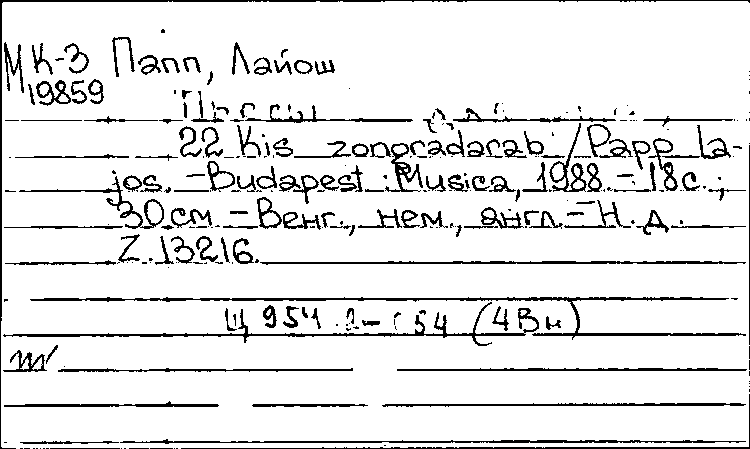 МК-3 Папп, Лайош
19859
Пьесы
22 Kis zongoradarab / Papp La-
jos. – Budapest : Musica, 1988. – 18 с. ;
30 см – Венг., нем., англ. – Н. д.
Z. 13216.
Щ 954 (4Вн)